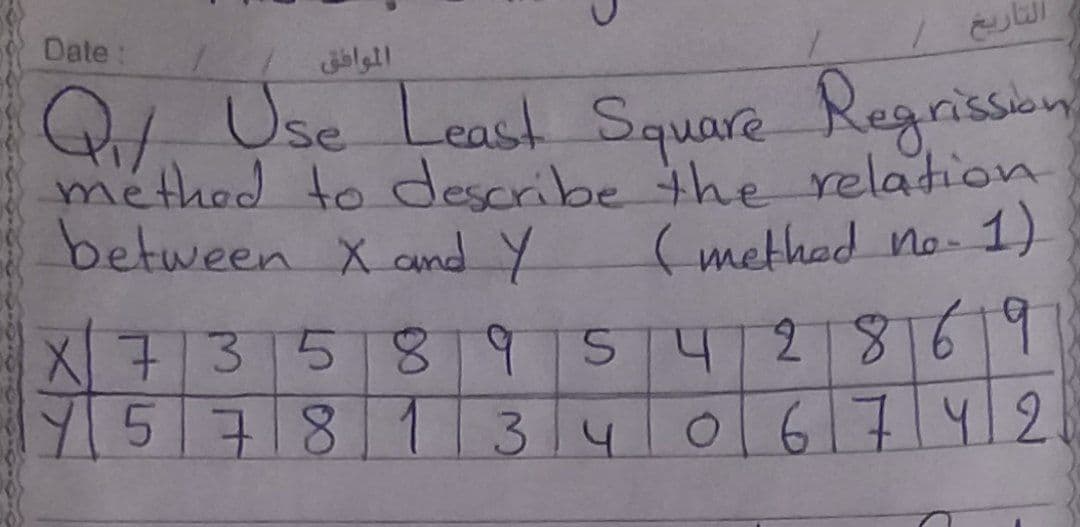 التاريخ / /
Date: / / الموافق
Q1/ Use Least Square Regrission
method to describe the relation
between X and Y (method no-1)
X 7 3 5 8 9 5 4 2 8 6 9
Y 5 7 8 1 3 4 0 6 7 4 2